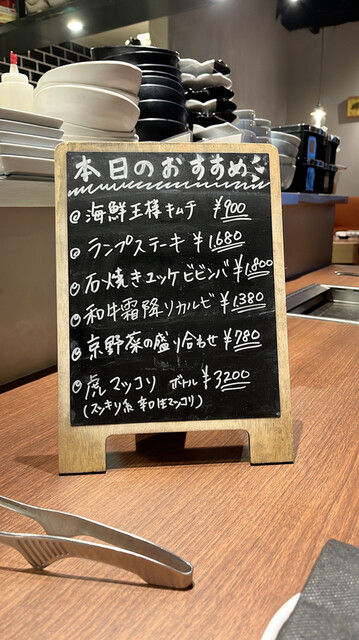 本日のおすすめ
◎ 海鮮王様キムチ ¥900
◎ ランプステーキ ¥1,680
◎ 石焼きユッケビビンバ ¥1,800
◎ 和牛霜降りカルビ ¥1,380
◎ 京野菜の盛り合わせ ¥780
◎ 虎マッコリ ボトル ¥3,200
(スッキリ系 辛口生マッコリ)